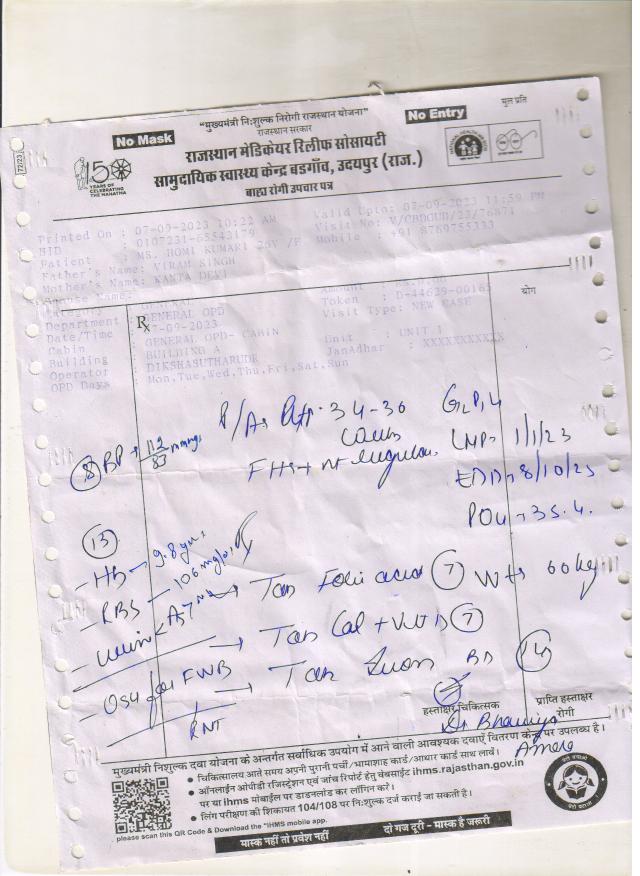 "मुख्यमंत्री निःशुल्क निरोगी राजस्थान योजना"
राजस्थान सरकार
मूल प्रति
No Mask
No Entry
राजस्थान मेडिकेयर रिलीफ सोसायटी
सामुदायिक स्वास्थ्य केन्द्र बडगाँव, उदयपुर (राज.)
बाह्य रोगी उपचार पत्र
72/23
150 YEARS OF CELEBRATING THE MAHATMA
Printed On : 07-09-2023 10:22 AM
Valid Upto: 07-09-2023 11:59 PM
HID : 0107231-65543179
Patient : MS. HOMI KUMARI 26Y /F
Mobile : +91 8769755333
Father's Name: VIRAM SINGH
Mother's Name: KANTA DEVI
Spouse Name:
Category : GENERAL
Amount :
Token : D-44629-00165
Department : GENERAL OPD
Visit Type: NEW CASE
Date/Time : 07-09-2023
Cabin : GENERAL OPD- CABIN
Unit : UNIT 1
Building : BUILDING A
JanAadhar : XXXXXXXXXXX
Operator : DIKSHASUTHARUDR
OPD Days : Mon,Tue,Wed,Thu,Fri,Sat,Sun
Rx
योग
P/A 34-36
BP 112/83 mmHg
LMP 1/1/23
FHS+ regular
EDD 8/10/23
POG 35.4
13
Hb 9.8 gm
RBS 106 mg/dl
Urine
Tab Folic acid 7 Wt 60 kg
Tab Cal + Vit D 7
USG for FWB
Tab Iron BD
RNT
हस्ताक्षर चिकित्सक
प्राप्ति हस्ताक्षर रोगी
मुख्यमंत्री निःशुल्क दवा योजना के अन्तर्गत सर्वाधिक उपयोग में आने वाली आवश्यक दवाएँ वितरण केन्द्र पर उपलब्ध है।
• चिकित्सालय आते समय अपनी पुरानी पर्ची/भामाशाह कार्ड/आधार कार्ड साथ लावें।
• ऑनलाईन ओपीडी रजिस्ट्रेशन एवं जांच रिपोर्ट हेतु वेबसाईट ihms.rajasthan.gov.in
पर या ihms मोबाईल पर डाउनलोड कर लॉगिन करें।
• लिंग परीक्षण की शिकायत 104/108 पर निःशुल्क दर्ज कराई जा सकती है।
please scan this QR Code & Download the "IHMS mobile app.
मास्क नहीं तो प्रवेश नहीं
दो गज दूरी - मास्क है जरूरी